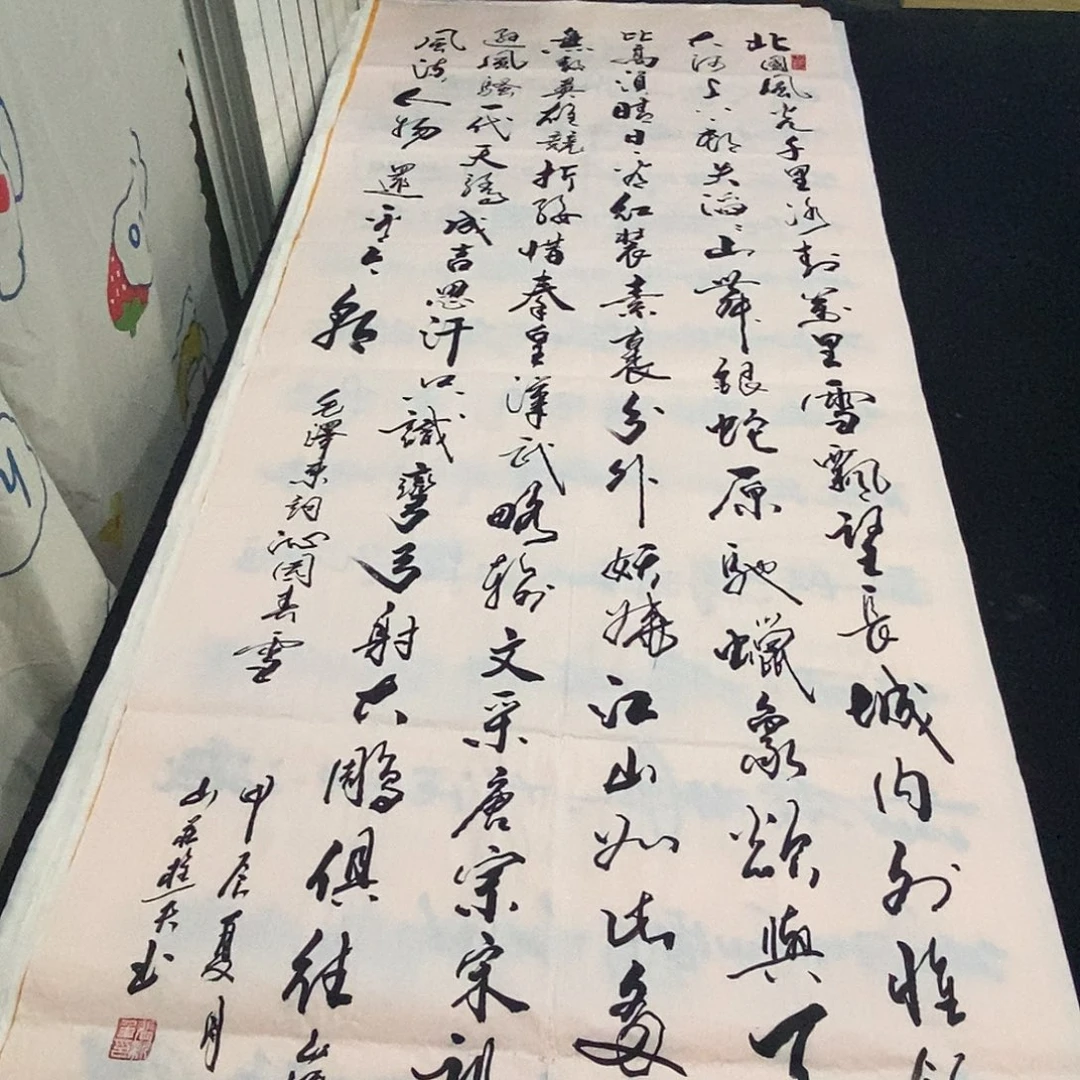 北國風光千里冰封萬里雪飄望長城内外惟
大河上下頓失滔滔山舞銀蛇原馳蠟象欲與天
比高須晴日看紅裝素裹分外妖嬈江山如此多
無數英雄競折腰惜秦皇漢武略輸文采唐宗宋祖
遜風騷一代天驕成吉思汗只識彎弓射大鵰俱往
風流人物還看今朝
毛澤東詞沁园春雪
甲辰夏月
山 書